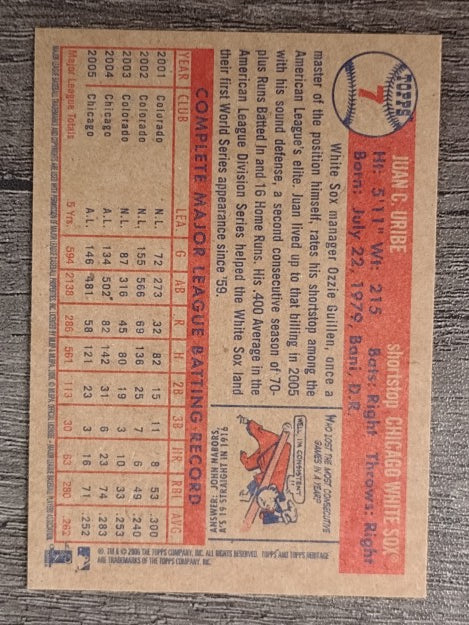 TOPPS
7
JUAN C. URIBE
shortstop CHICAGO WHITE SOX
Ht: 5'11" Wt: 215 Bats: Right Throws: Right
Born: July 22, 1979, Bani, D.R.
White Sox manager Ozzie Guillen, once a
master of the position himself, rates his shortstop among the
American League's elite. Juan lived up to that billing in 2005
with his sound defense, a second consecutive season of 70-
plus Runs Batted In and 16 Home Runs. His .400 Average in the
American League Division Series helped the White Sox land
their first World Series appearance since '59.
WHO LOST THE MOST CONSECUTIVE
GAMES IN A YEAR?
WELL, I'M CONSISTENT!
ANSWER: JOHN NABORS,
A'S 19 STRAIGHT IN 1916
COMPLETE MAJOR LEAGUE BATTING RECORD
YEAR CLUB LEA G AB R H 2B 3B HR RBI AVG
2001 Colorado N.L. 72 273 32 82 15 11 8 53 .300
2002 Colorado N.L. 155 566 69 136 25 7 6 49 .240
2003 Colorado N.L. 87 316 45 80 19 3 10 33 .253
2004 Chicago A.L. 134 502 82 142 31 6 23 74 .283
2005 Chicago A.L. 146 481 58 121 23 3 16 71 .252
Major League Totals 5 Yrs. 594 2138 286 561 113 30 63 280 .262
®, TM & © 2006 THE TOPPS COMPANY, INC. ALL RIGHTS RESERVED. TOPPS AND TOPPS HERITAGE
ARE TRADEMARKS OF THE TOPPS COMPANY, INC.